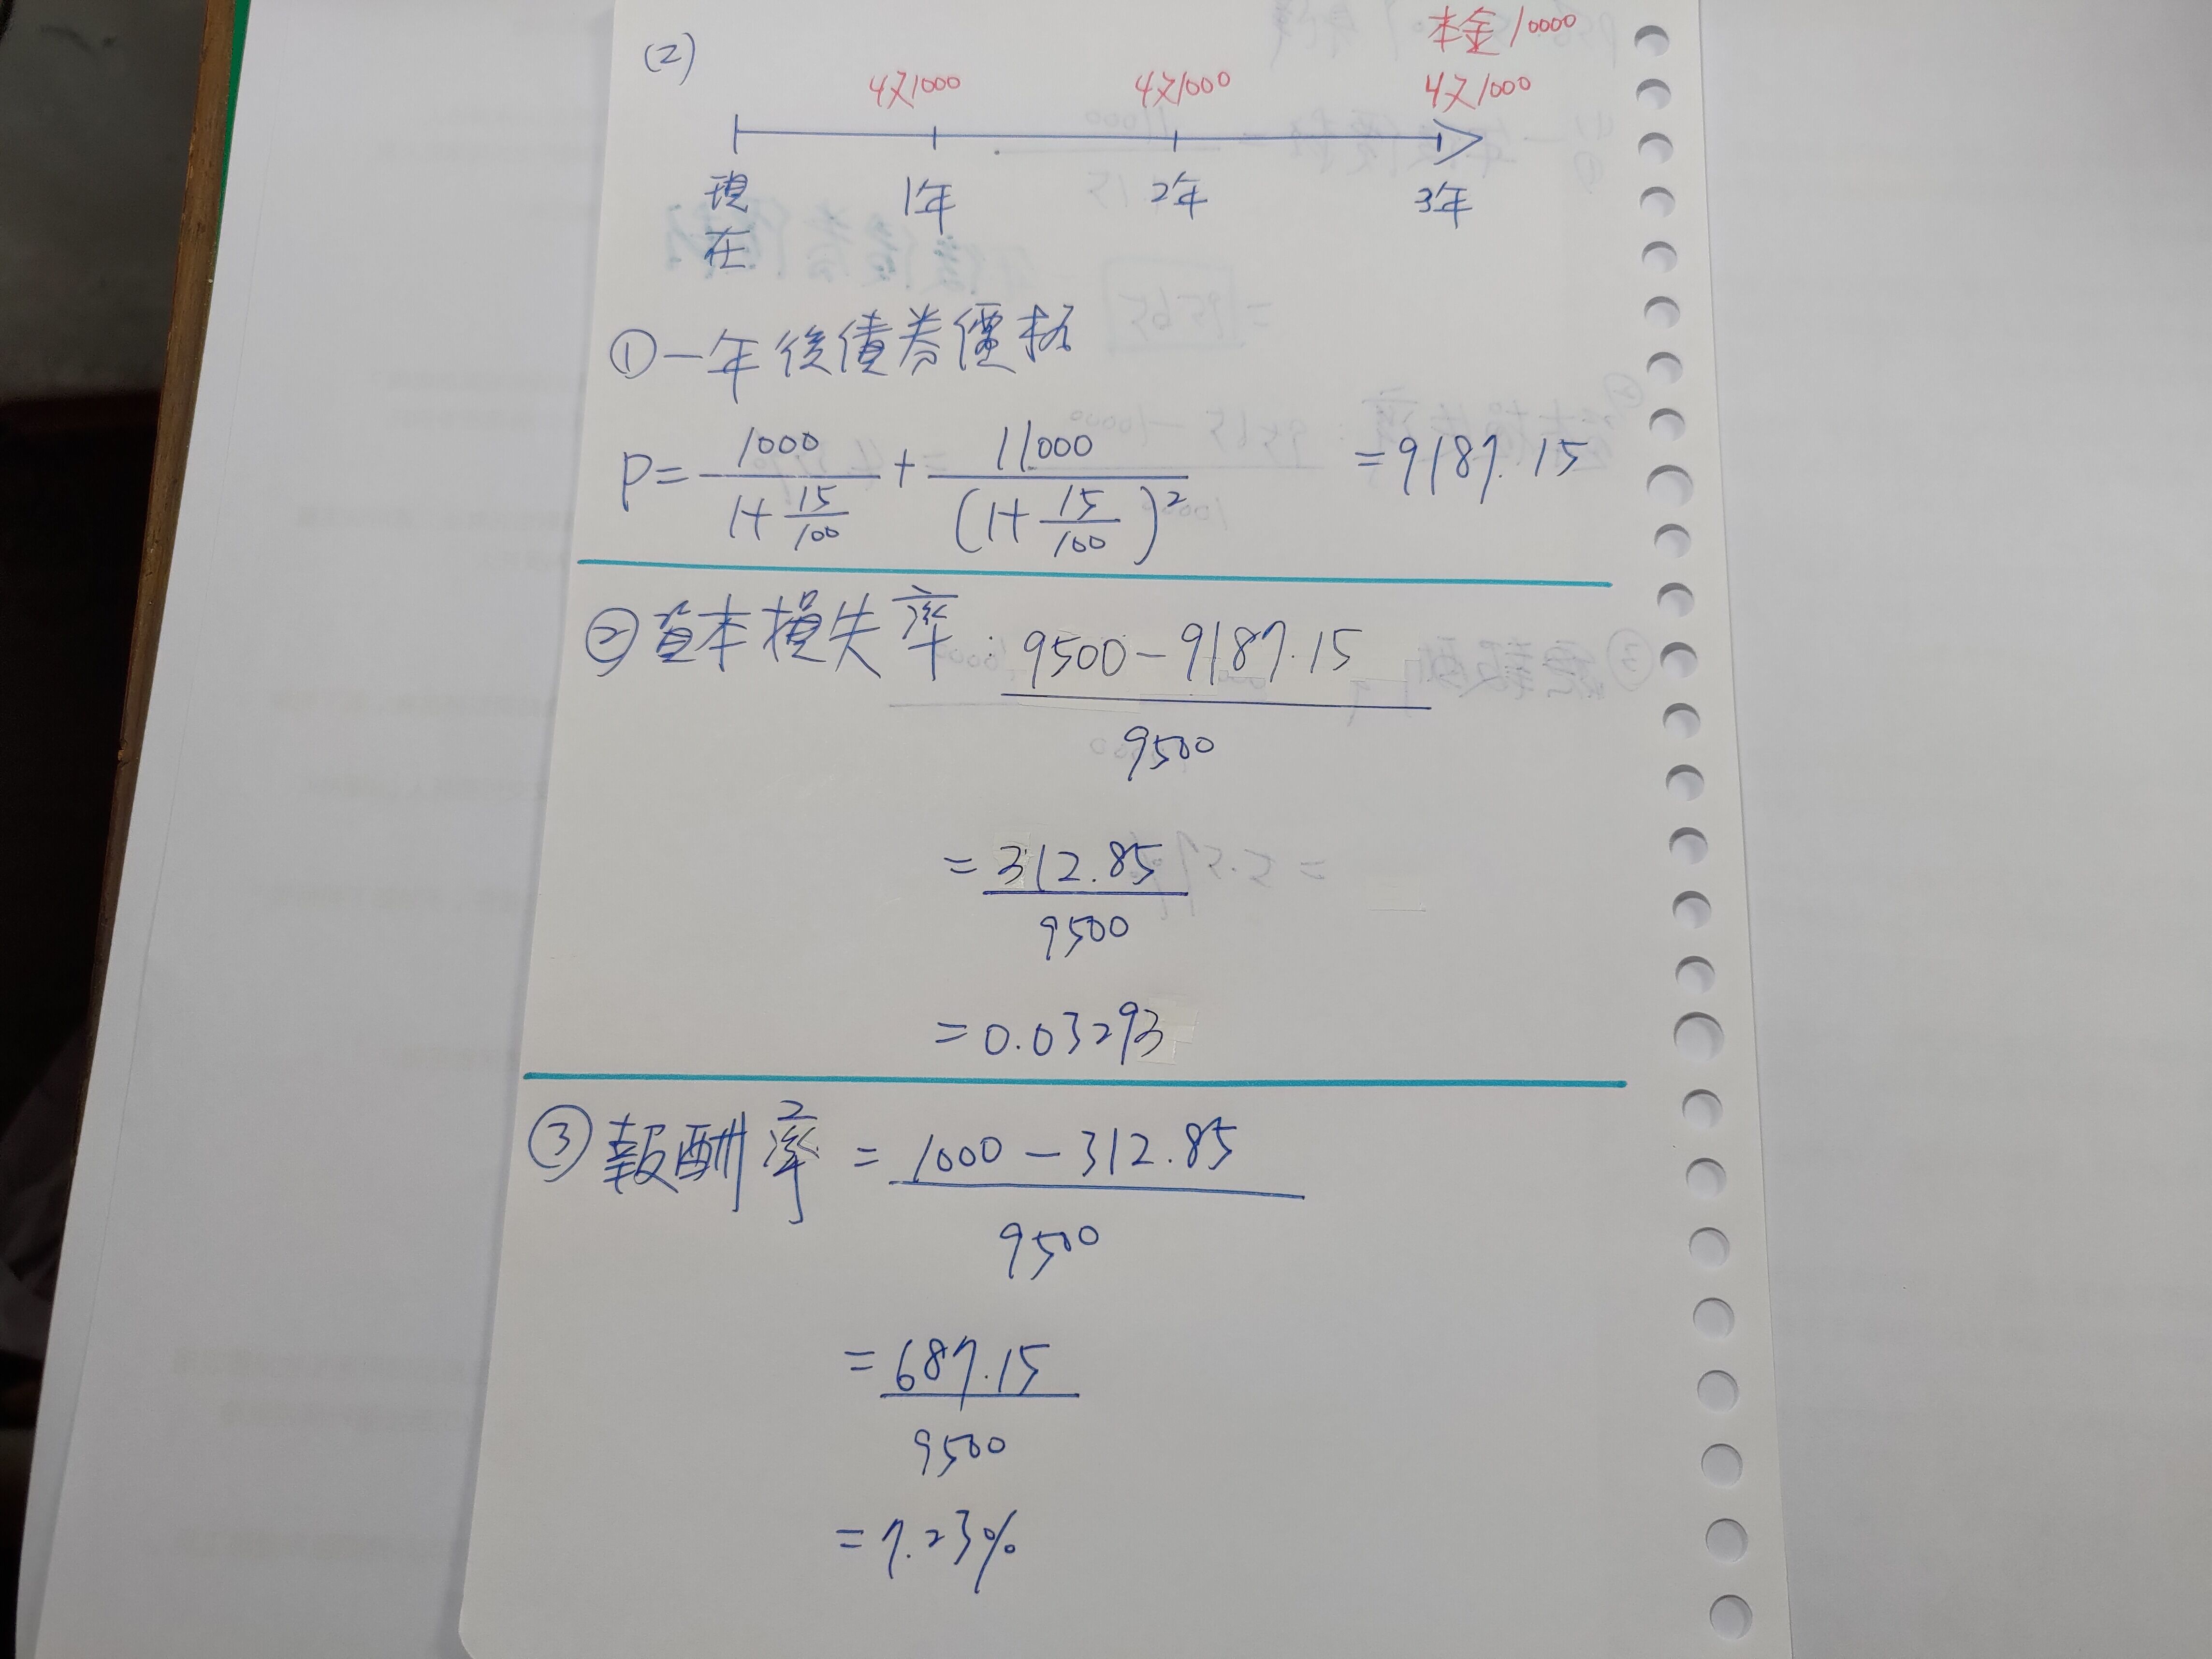 (2)
本金10000
收1000 收1000 收1000
現在 1年 2年 3年
①一年後債券價格
P = 1000 / (1 + 15/100) + 11000 / (1 + 15/100)² = 9187.15
②資本損失率: (9500 - 9187.15) / 9500
= 312.85 / 9500
= 0.03293
③報酬率 = (1000 - 312.85) / 9500
= 687.15 / 9500
= 7.23%